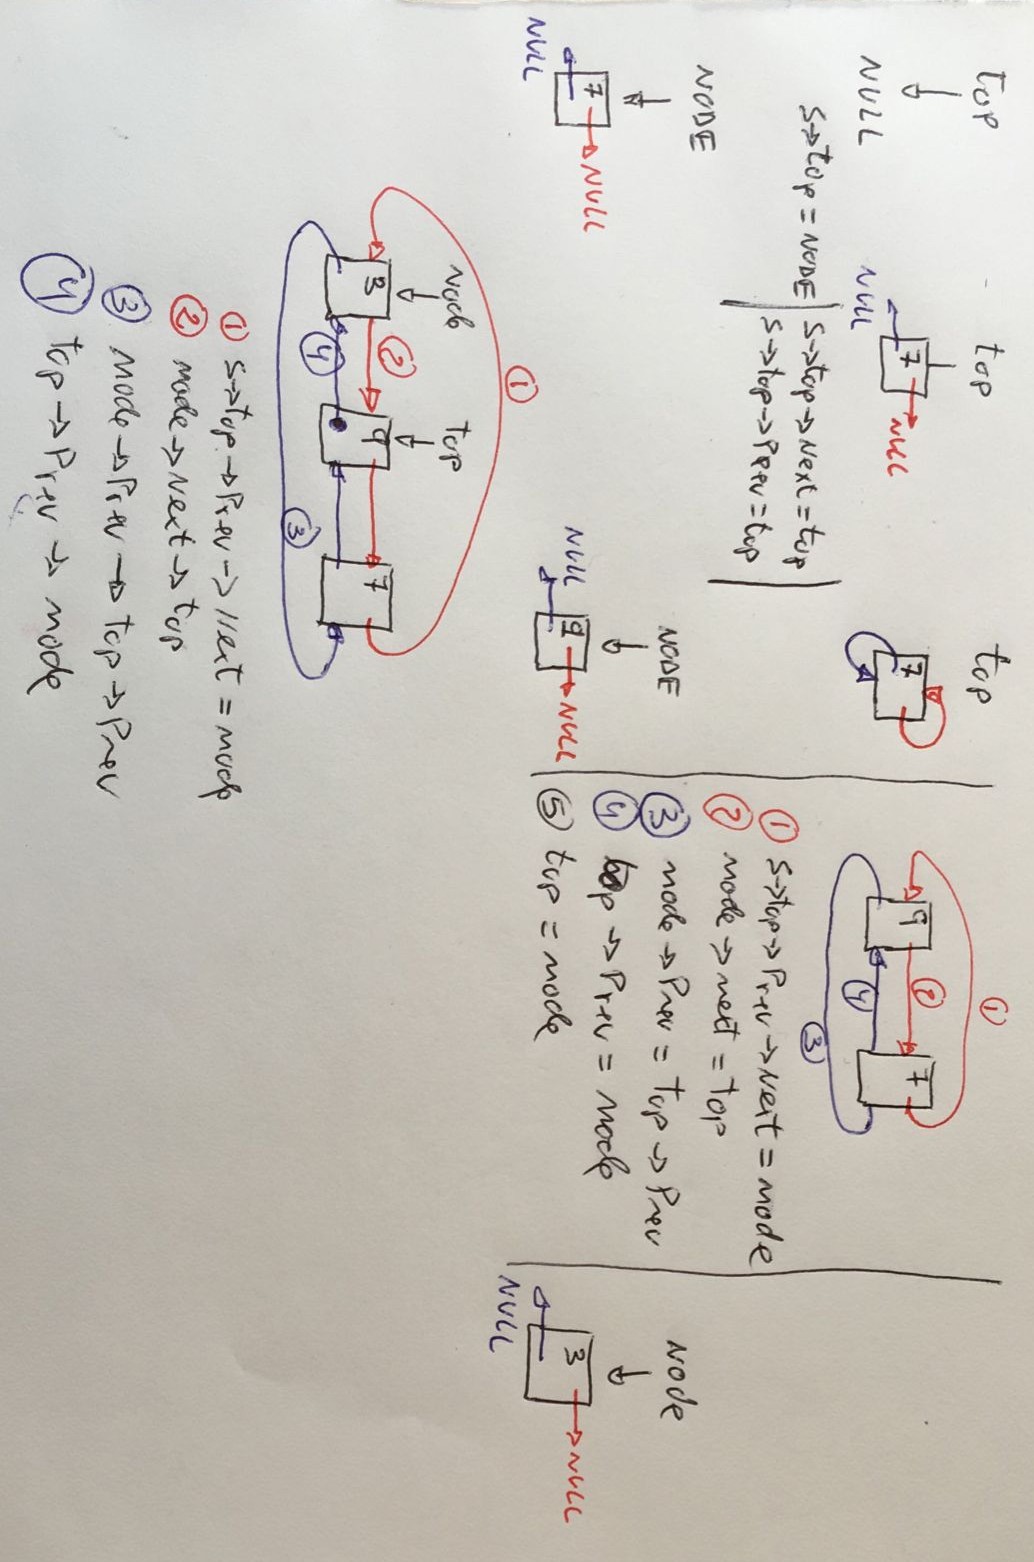 top
NULL
top
7
NULL
NULL
top
7
s→top = NODE
s→top→Next = top
s→top→Prev = top
NODE
7
NULL
NULL
NODE
9
NULL
NULL
①
9 ② 7
④
③
① s→top→Prev→Next = node
② node→next = top
③ node→Prev = top→Prev
④ top→Prev = node
⑤ top = node
Node
3
NULL
NULL
①
Node top
3 ② 9 7
④ ③
① s→top→Prev→Next = node
② node→Next→top
③ node→Prev→top→Prev
④ top→Prev→node